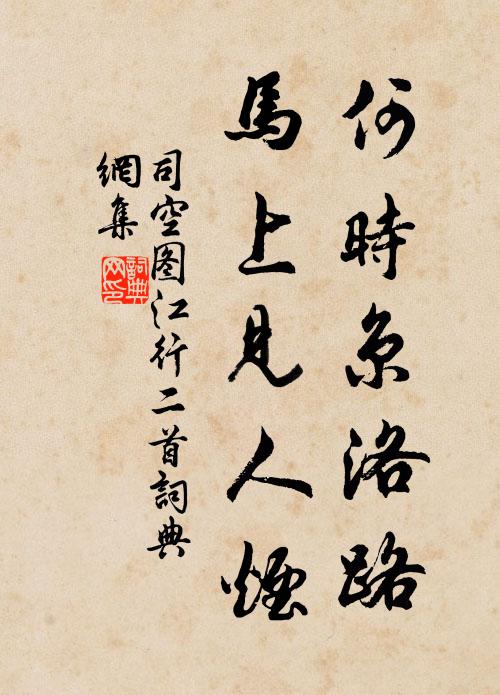 何時京洛路
馬上見人煙
司空图江行二首詞典
網集
詞典
网印